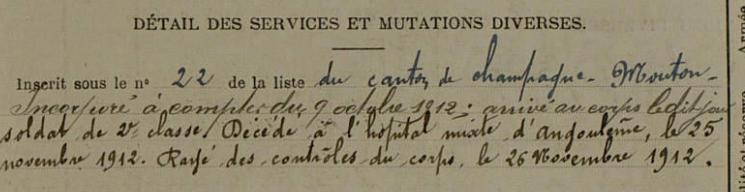 DÉTAIL DES SERVICES ET MUTATIONS DIVERSES.
Inscrit sous le nº 22 de la liste du canton de champagne-Mouton-
Incorporé à compter du 9 octobre 1912; arrivé au corps ledit jour
soldat de 2e classe. Décédé à l'hôpital mixte d'angoulême, le 25
novembre 1912. Rayé des contrôles du corps, le 26 Novembre 1912.
Armée